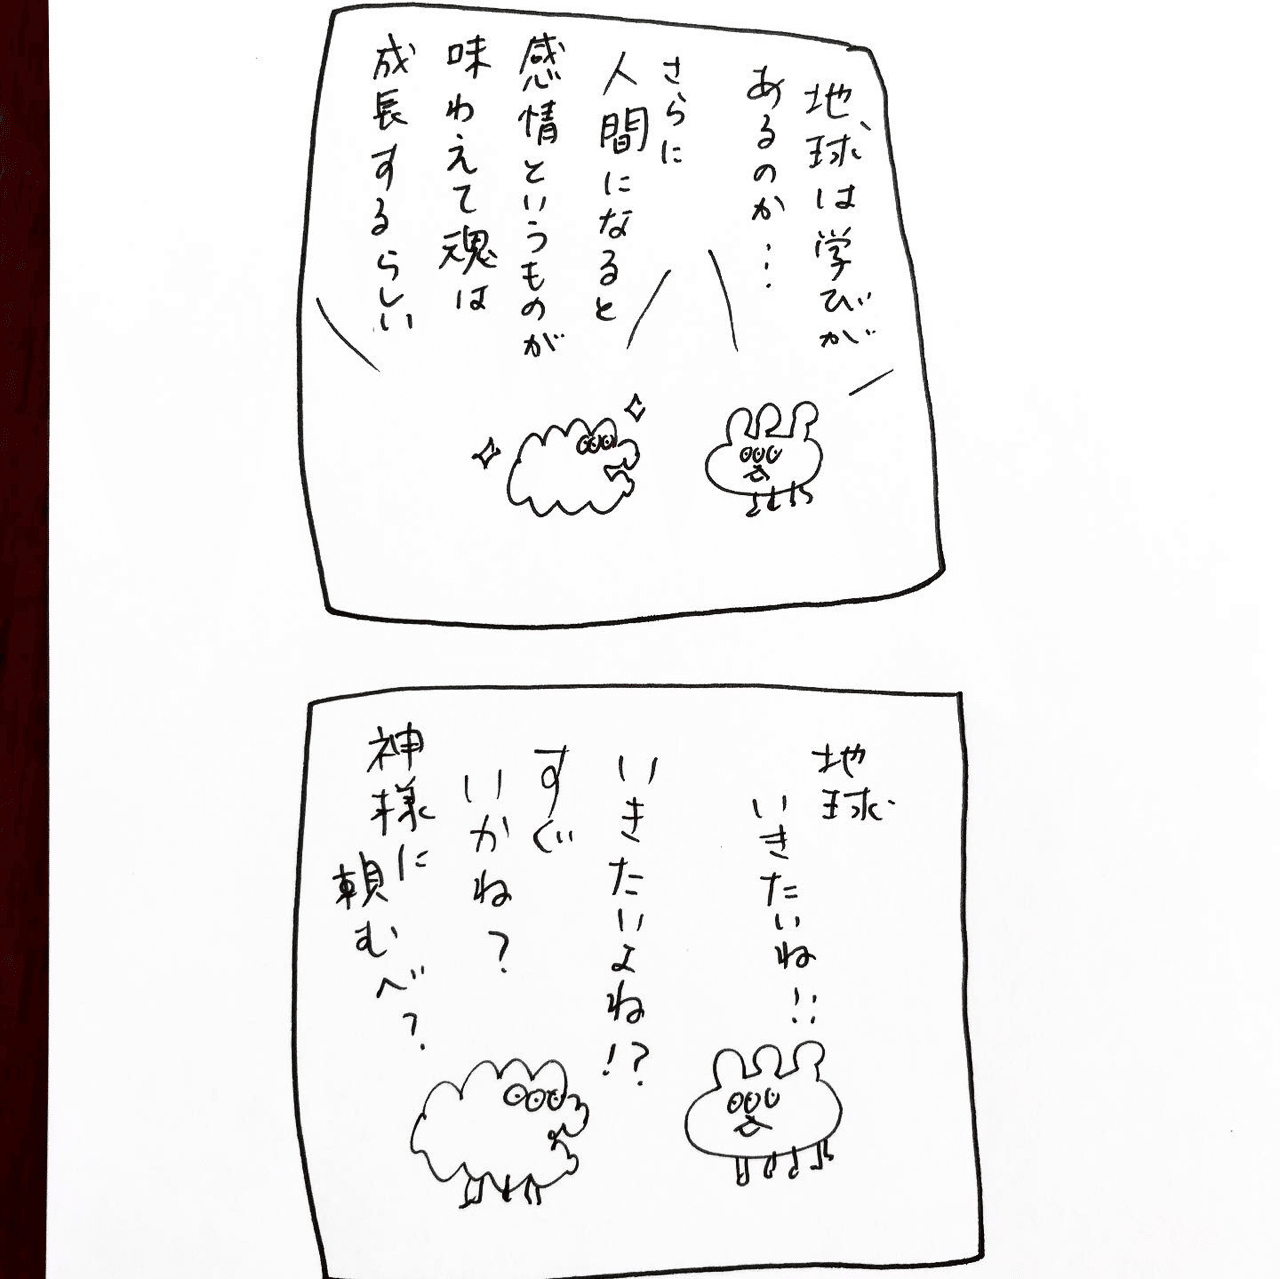 地球は学びが
あるのか…
さらに
人間になると
感情というものが
味わえて魂は
成長するらしい
地球
いきたいね!!
いきたいよね!?
すぐ
いかね?
神様に
頼むべ?